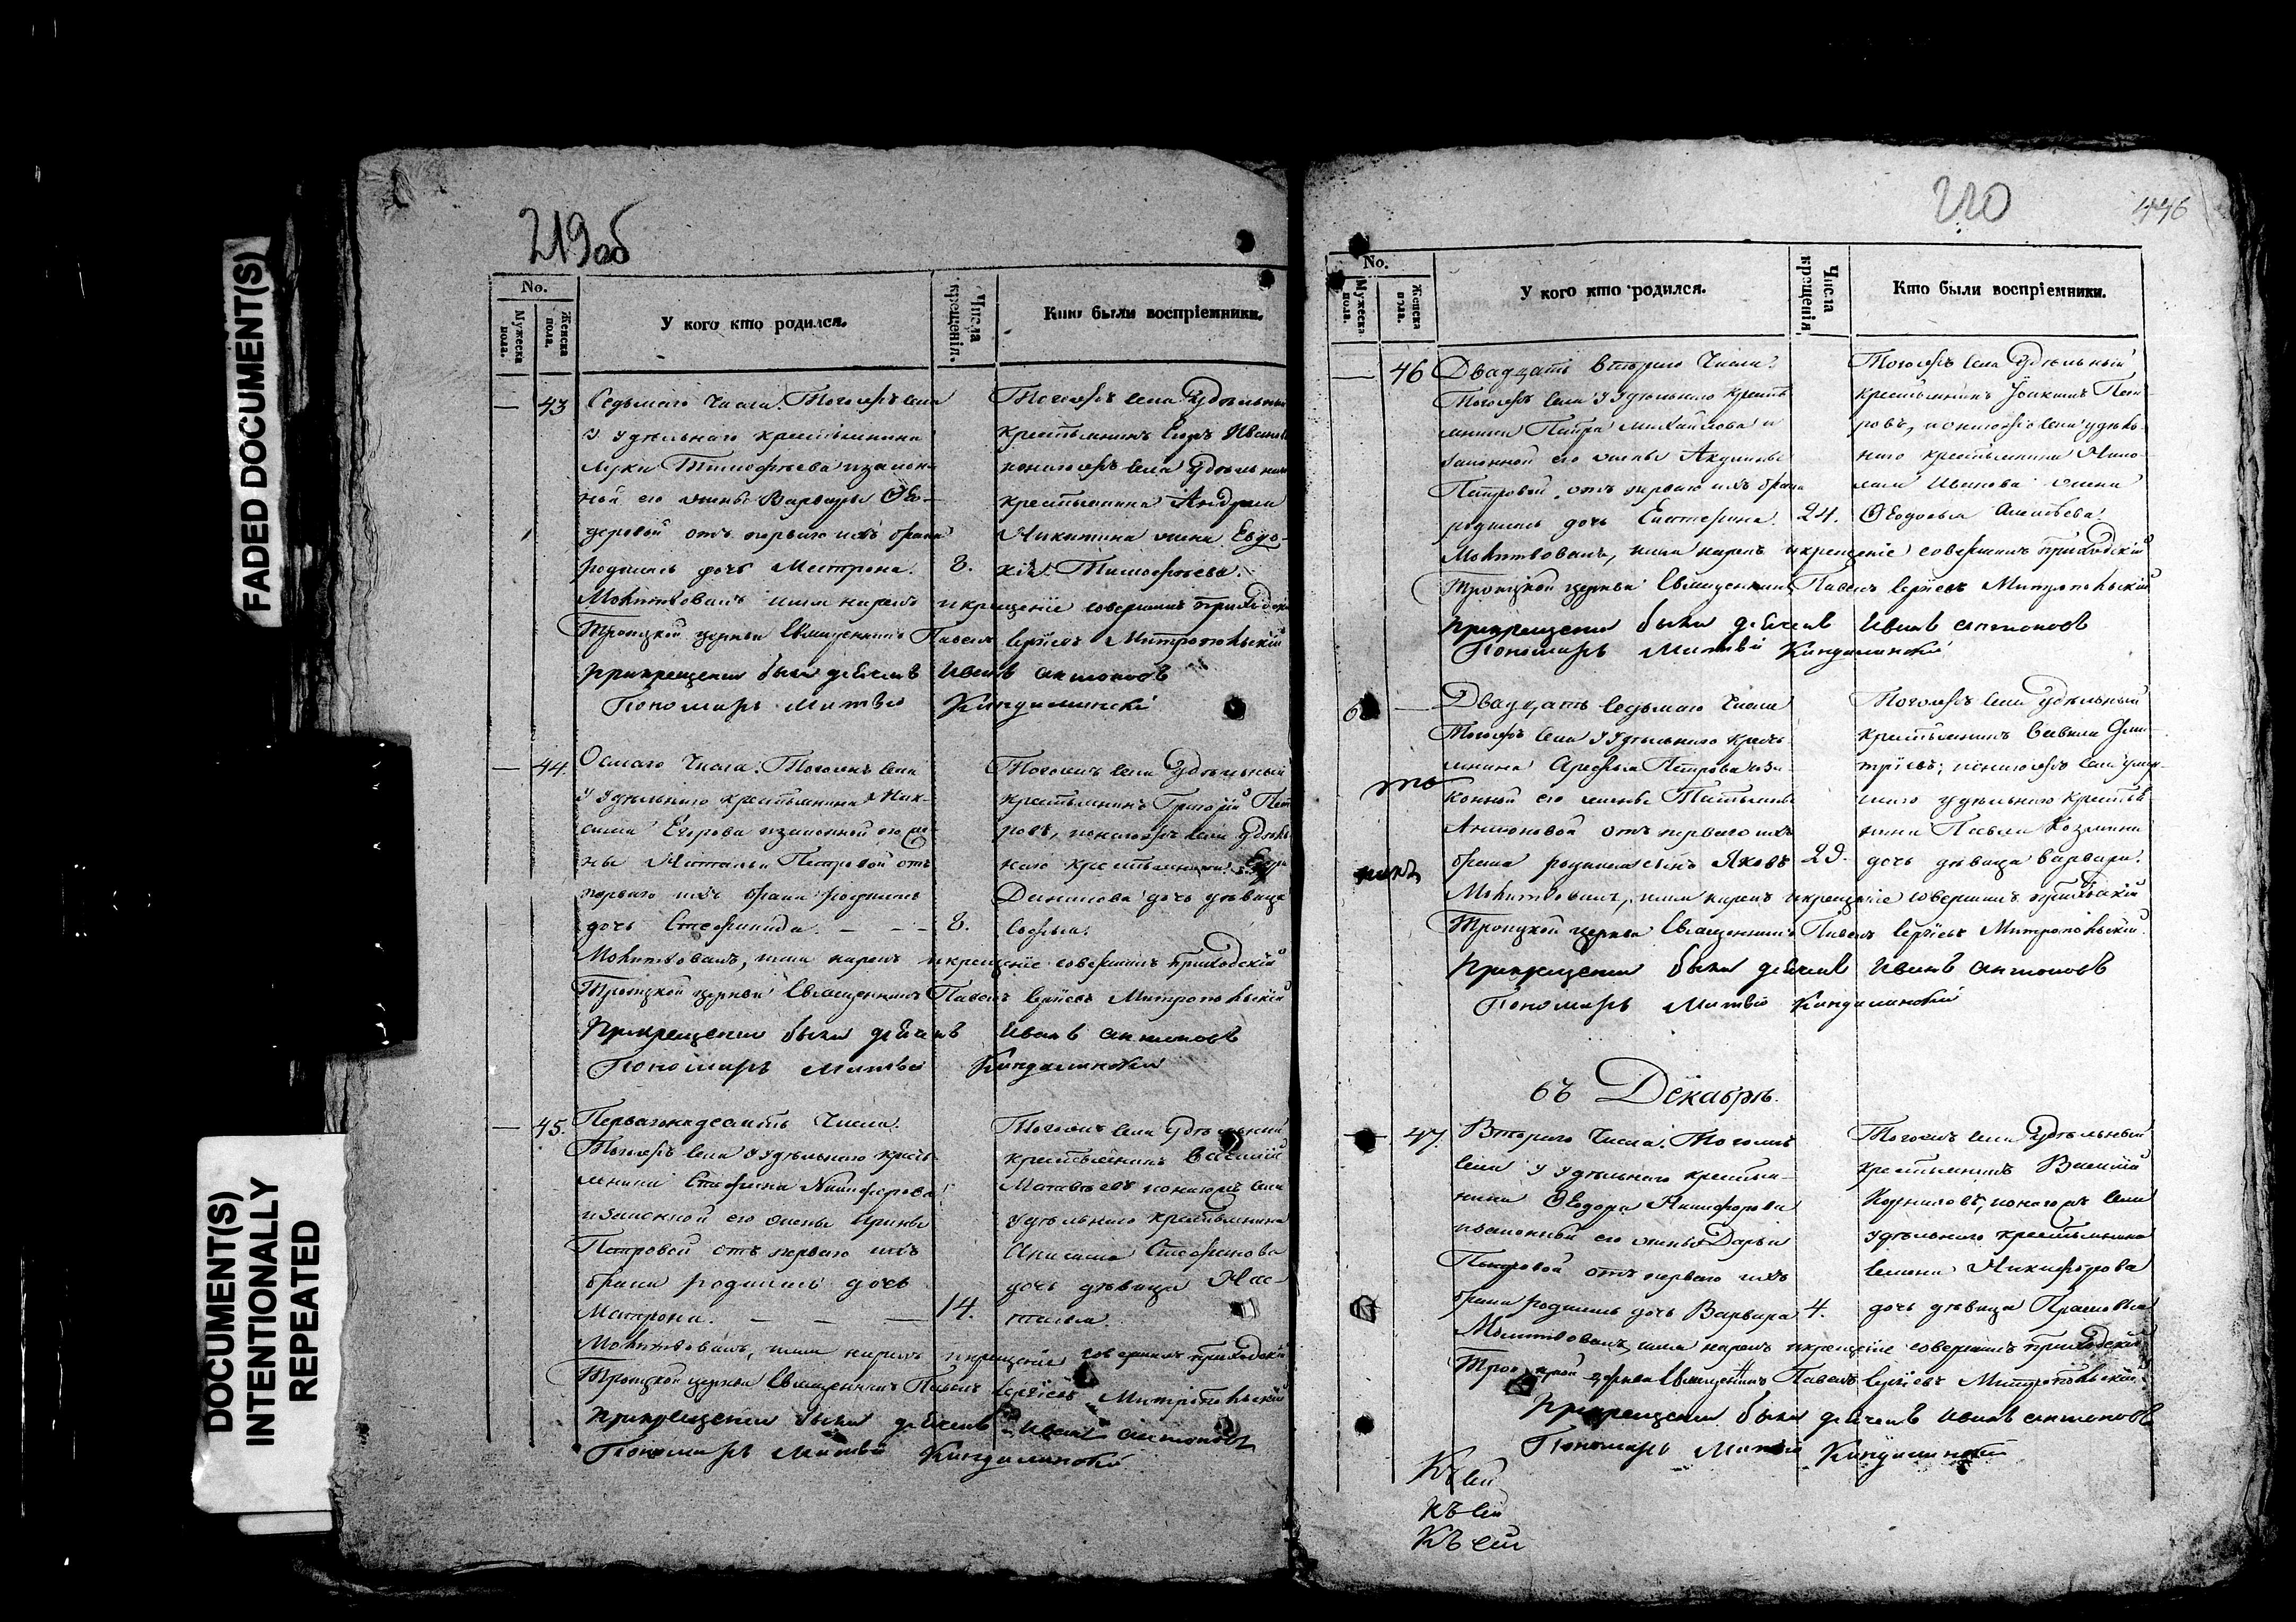 FADED DOCUMENT(S)
DOCUMENT(S)
INTENTIONALLY
REPEATED
219об
No.
Мужеска пола.
Женска пола.
У кого кто родился.
Числа крещенія.
Кто были воспріемники.
43
Седьмаго числа. Тогожъ села
у удѣльнаго крестьянина
Луки Тимофѣева и закон
ной его жены Варвары Ѳео-
доровой отъ перваго ихъ брака
родилась дочь Матрона.
8.
Тогожъ села Удѣльный
крестьянинъ Егоръ Иванов
и онагожъ села Удѣльнаго
крестьянина Андрея
Никитина жена Евдо-
кія Тимофѣева.
Молитвовалъ имя нарекъ и крещеніе совершилъ приходскій
Троицкой церкви Священникъ Павелъ Сергіевъ Митропольскій
При крещеніи были дьячекъ Иванъ Антоновъ
Пономарь Матвѣй
44.
Осмаго числа. Тогожъ села
у удѣльнаго крестьянина Мак-
сима Егорова и законной его же
ны Натальи Петровой отъ
перваго ихъ брака родилась
дочь Стефанида. — — —
8.
Тогожъ села Удѣльный
крестьянинъ Григорій Пет
ровъ, и онагожъ села Удѣль
наго крестьянина
Данилова дочь дѣвица
Софья.
Молитвовалъ, имя нарекъ и крещеніе совершилъ приходскій
Троицкой церкви Священникъ Павелъ Сергіевъ Митропольскій
При крещеніи были дьячекъ Иванъ Антоновъ
Пономарь Матвѣй
45.
Первагонадесять числа.
Тогожъ села у удѣльнаго кресть
янина Стефана Никифорова
и законной его жены Ирины
Петровой отъ перваго ихъ
брака родилась дочь
Матрона. — — —
14.
Тогожъ села Удѣльный
крестьянинъ Василій
Матвѣевъ и онагожъ села
удѣльнаго крестьянина
Анисима Стефанова
дочь дѣвица Нас
тасья.
Молитвовалъ, имя нарекъ и крещеніе совершилъ приходскій
Троицкой церкви Священникъ Павелъ Сергіевъ Митропольскій
При крещеніи были дьячекъ Иванъ Антоновъ
Пономарь Матвѣй
220
446
No.
Мужеска пола.
Женска пола.
У кого кто родился.
Числа крещенія
Кто были воспріемники.
46
Двадцать втораго числа.
Тогожъ села у Удѣльнаго кресть
янина Петра Михайлова и
законной его жены Акулины
Петровой, отъ перваго ихъ брака
родилась дочь Екатерина.
24.
Тогожъ села Удѣльный
крестьянинъ Іоакимъ Пет
ровъ, и онагожъ села удѣль
наго крестьянина
Иванова жена
Ѳеодосья
Молитвовалъ, имя нарекъ и крещеніе совершилъ приходскій
Троицкой церкви Священникъ Павелъ Сергіевъ Митропольскій
При крещеніи были дьячекъ Иванъ Антоновъ
Пономарь Матвѣй
Двадцать седьмаго числа
Тогожъ села у Удѣльнаго кресть
янина Арефья Петрова и за
конной его жены Татьяны
Антоновой отъ перваго ихъ
брака родился сынъ Яковъ
29.
Тогожъ села Удѣльный
крестьянинъ Савелій Дми
тріевъ; и онагожъ села
удѣльнаго крестья
нина Павла Козмина
дочь дѣвица Варвара.
Молитвовалъ, имя нарекъ и крещеніе совершилъ приходскій
Троицкой церкви Священникъ Павелъ Сергіевъ Митропольскій.
При крещеніи были дьячекъ Иванъ Антоновъ
Пономарь Матвѣй
въ Декабрѣ.
47.
Втораго числа. Тогожъ
села у удѣльнаго крестья-
нина Ѳеодора Никифорова
и законной его жены Дарьи
Петровой отъ перваго ихъ
брака родилась дочь Варвара
4.
Тогожъ села Удѣльный
крестьянинъ Василій
Корниловъ, и онагожъ села
удѣльнаго крестьянина
Семена Никифорова
дочь дѣвица Прасковья
Молитвовалъ, имя нарекъ и крещеніе совершилъ приходскій
Троицкой церкви Священникъ Павелъ Сергіевъ Митропольскій.
При крещеніи были дьячекъ Иванъ Антоновъ
Пономарь Матвѣй
Къ сей
Къ сей
Къ сей